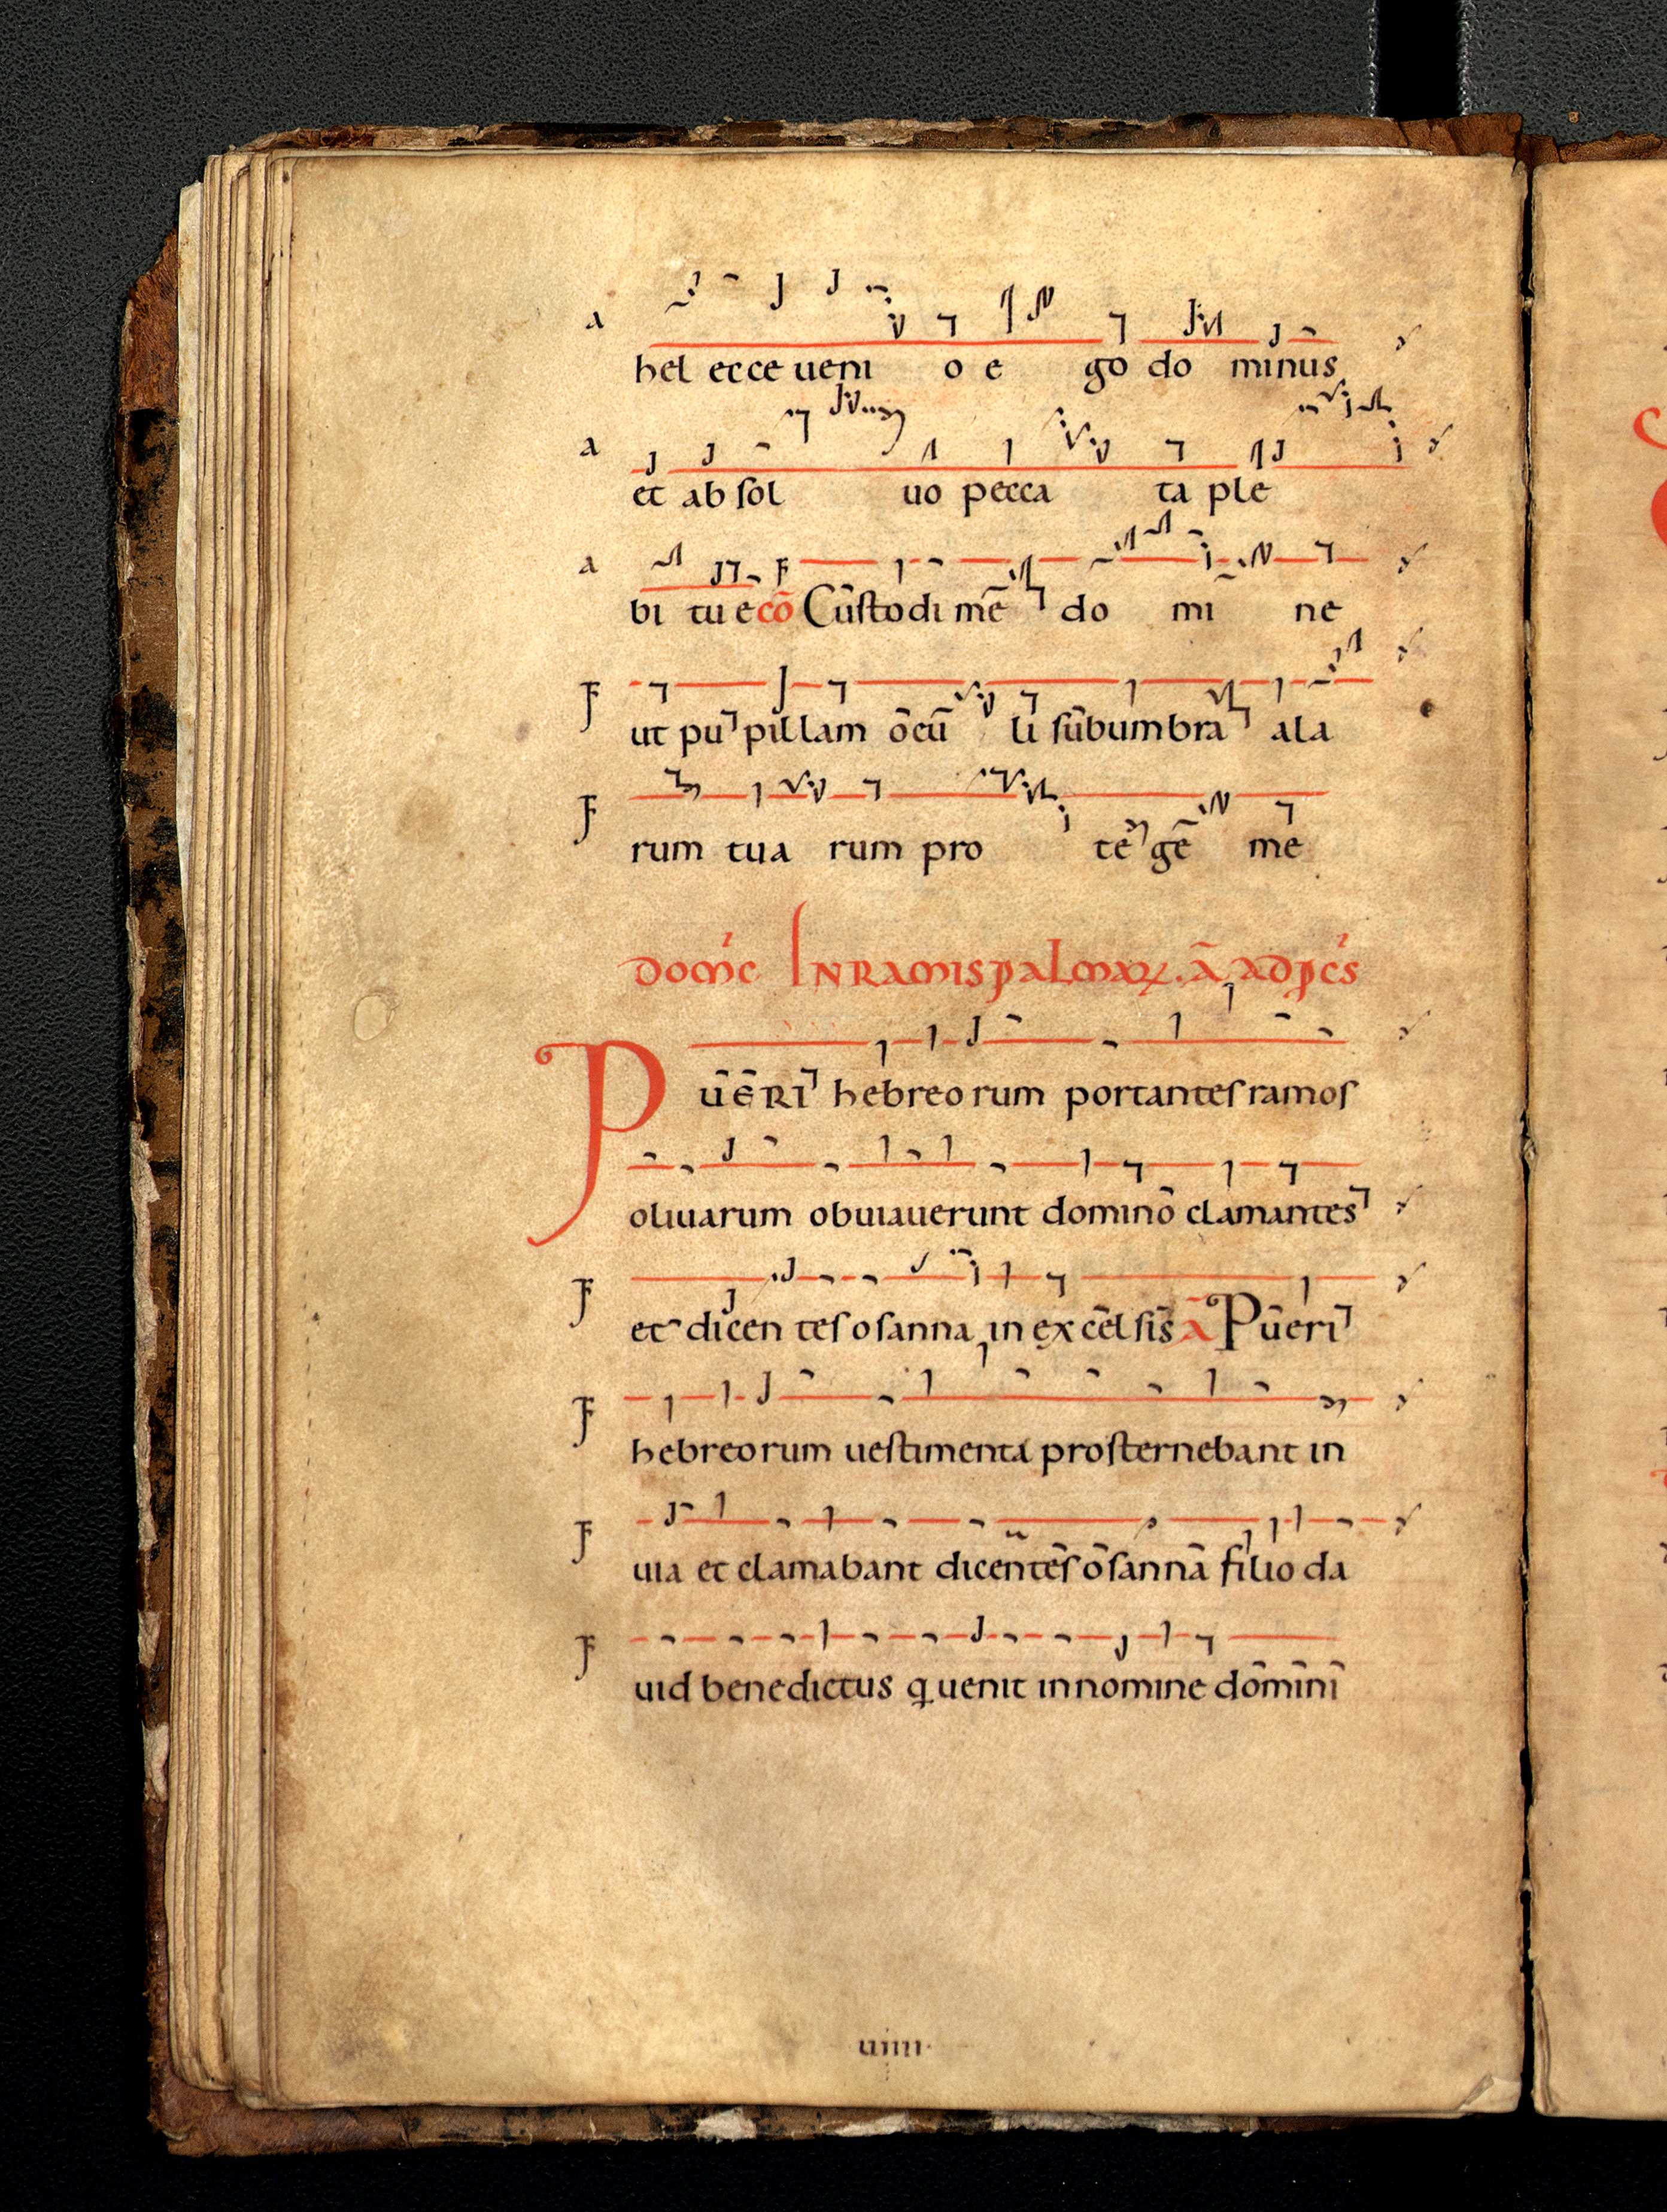 a
hel ecce ueni o e go do minus
a
et ab sol uo pecca ta ple
a
bi tu e cō Custodi me do mi ne
F
ut pupillam ocu li subumbra ala
F
rum tua rum pro te ge me
Domc̄ IN RAMIS palmaꝝ. Ā ad pcs
PUERI hebreo rum portantes ramos
oliuarum obuiauerunt domino clamantes
F
et dicen tes osanna in excelsis ā Pueri
F
hebreorum uestimenta prosternebant in
F
uia et clamabant dicentes osanna filio da
F
uid benedictus q uenit in nomine domini
uiiii.